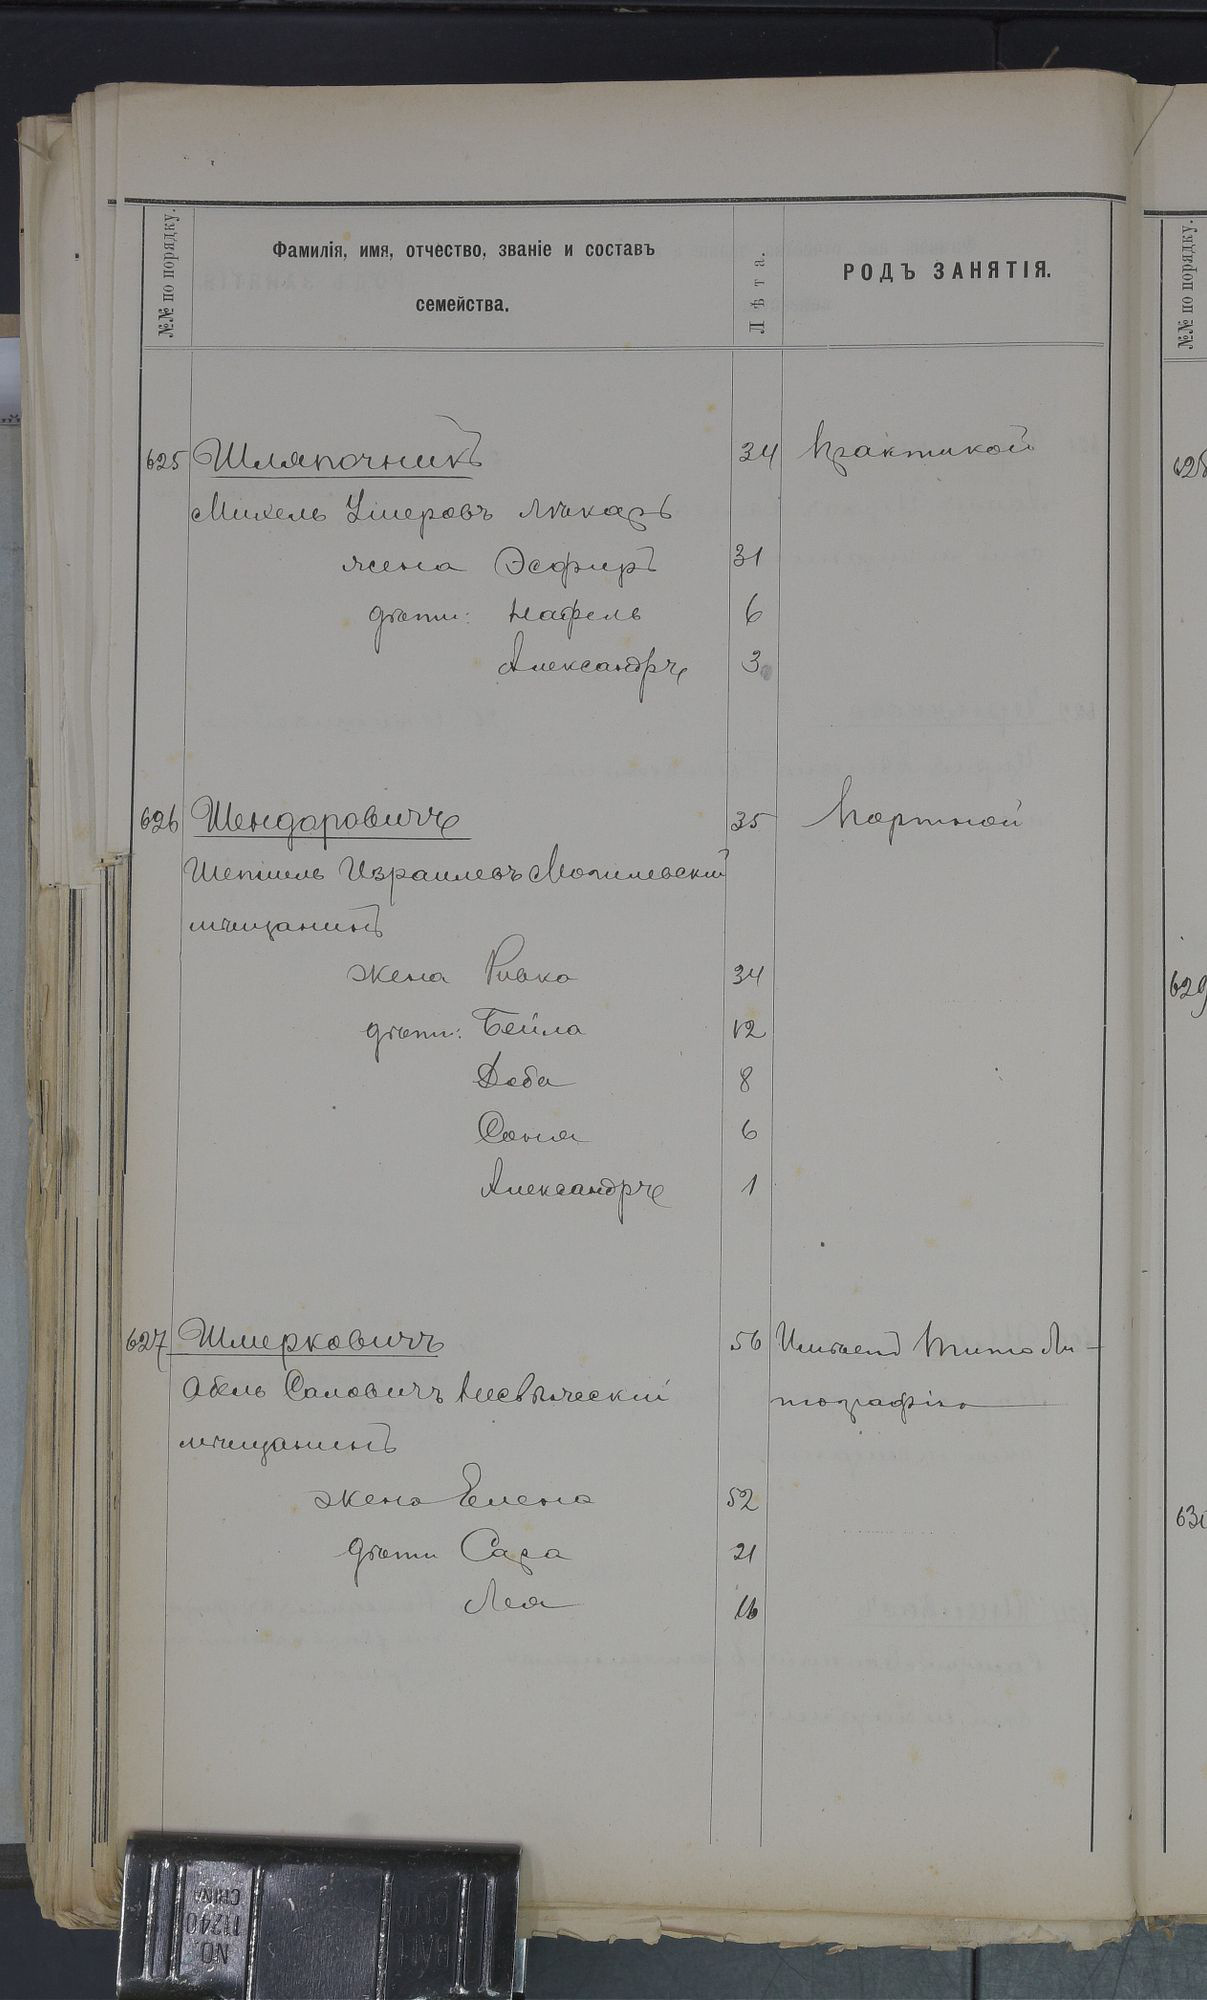 №№ по порядку.
Фамилія, имя, отчество, званіе и составъ
семейства.
Лѣта.
РОДЪ ЗАНЯТІЯ.
№№ по порядку.
625 Шляпочникъ 34 Практикой
Михель Лѣкарь
жена Эсфирь 31
дѣти: 6
Александръ 3
626 Шендаровичъ 35 Портной
Шепшель Израилевъ Могилевскій
мѣщанинъ
жена Ривка 34
дѣти: Бейла 12
Доба 8
Соня 6
Александръ 1
627 Шмерковичъ 56 Имѣетъ Типо Ли-
Абель Саловичъ Несвѣжескій тографію
мѣщанинъ
жена Елена 52
дѣти Сара 21
Лея 16
629
NO. 11240
CHINA